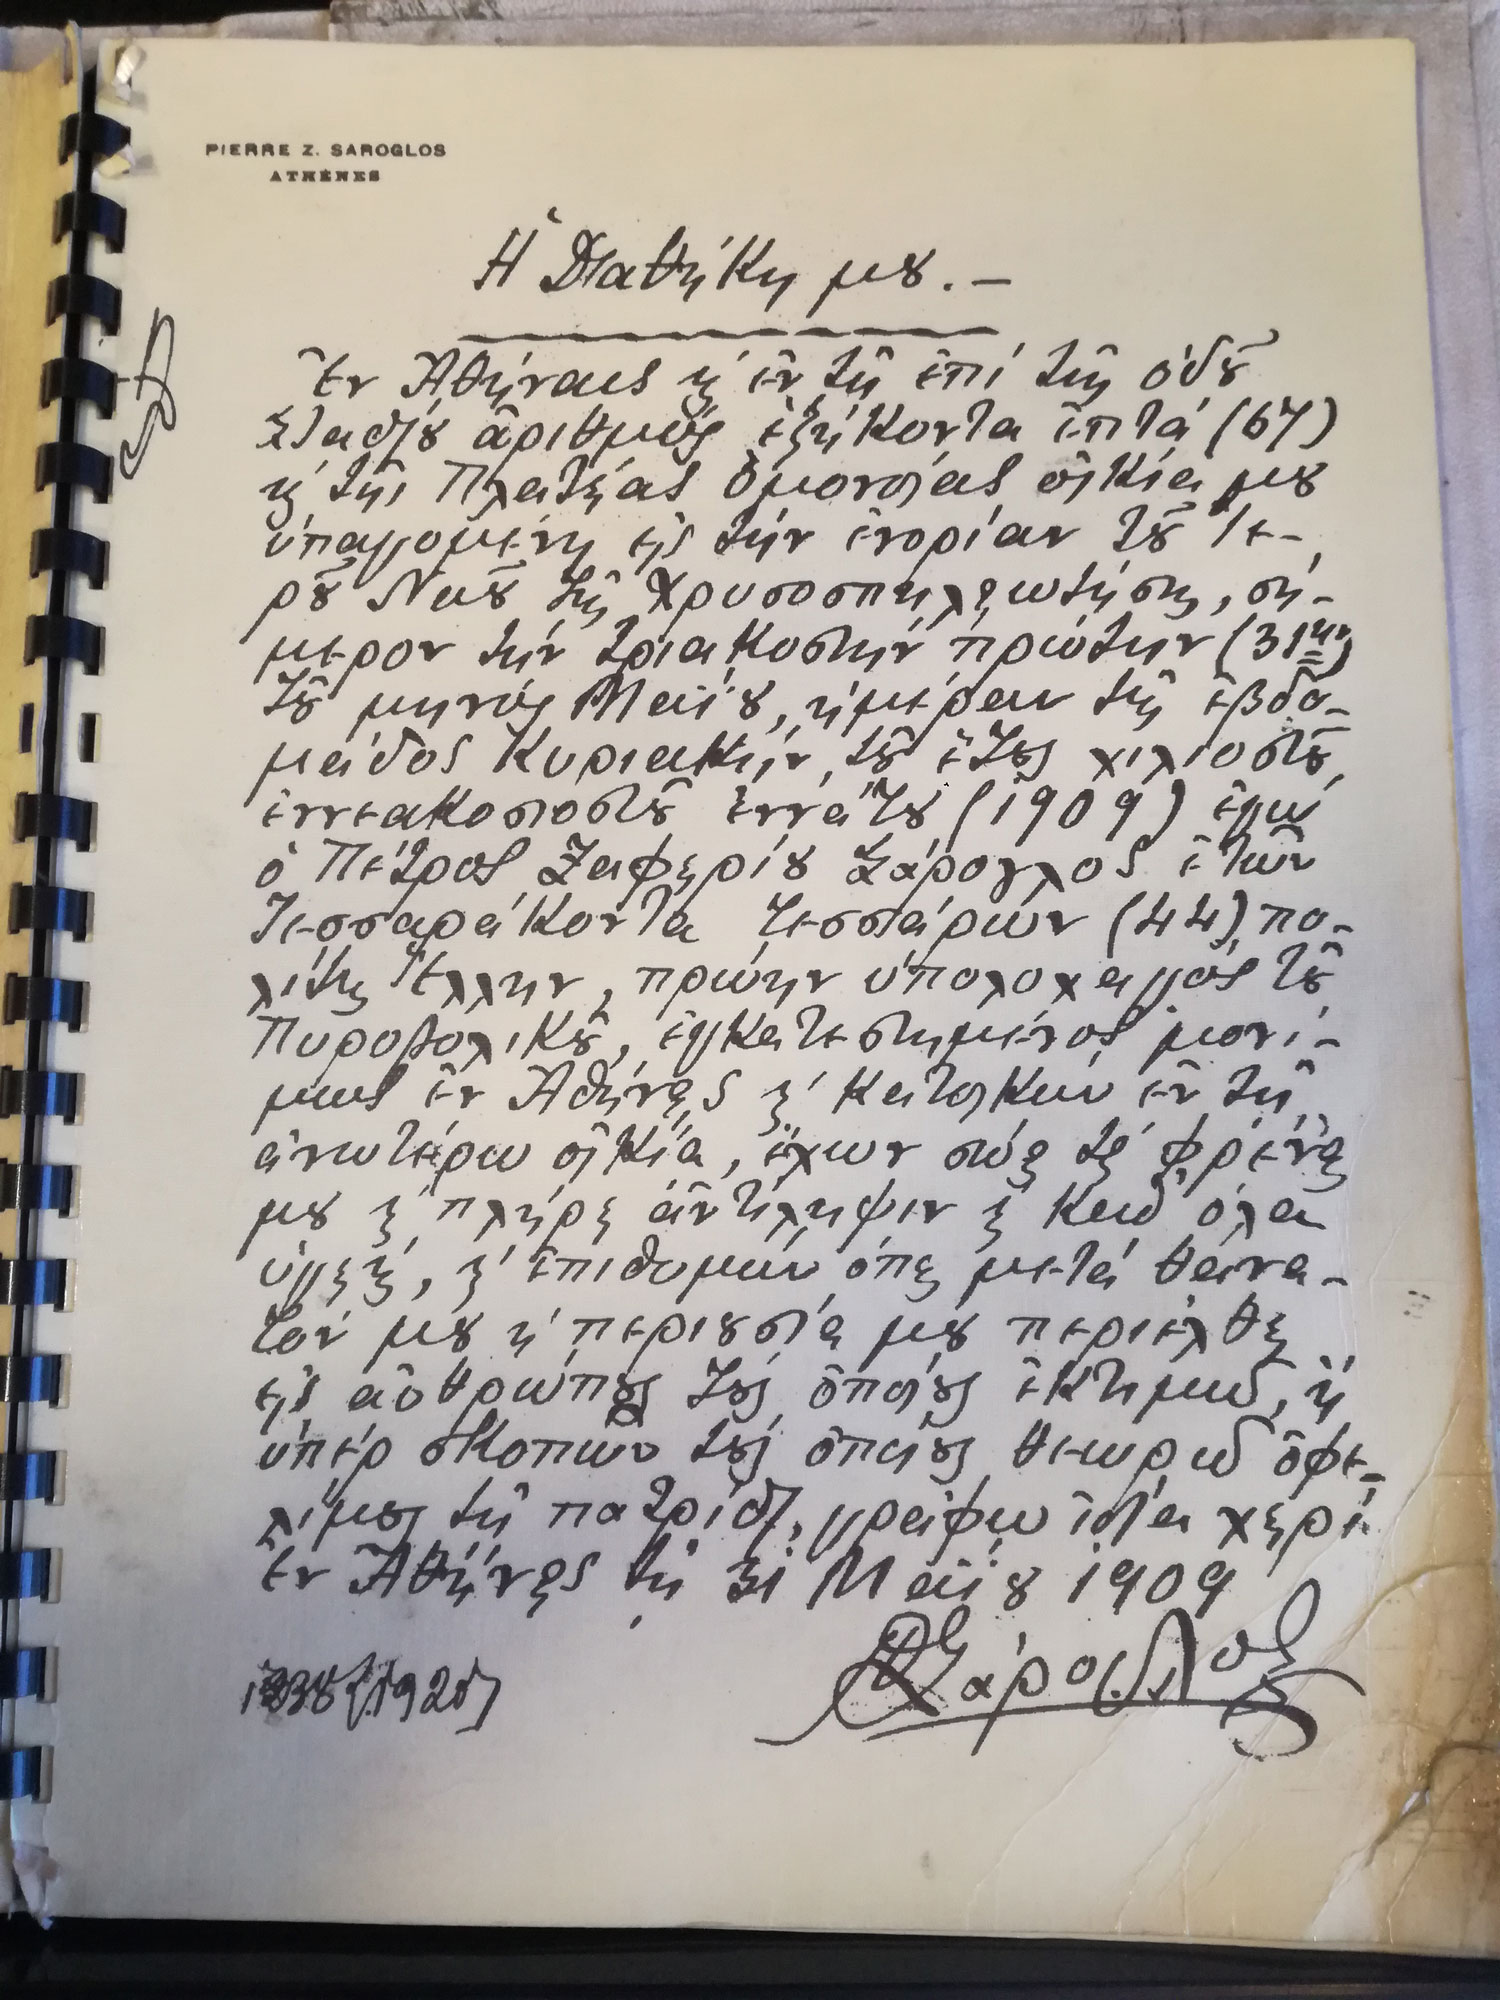 PIERRE Z. SAROGLOS
ATHÈNES
Ἡ Διαθήκη μου. —
Ἐν Ἀθήναις κ' ἐν τῇ ἐπὶ τῆς ὁδοῦ
Σταδίου ἀριθμὸς ἑξήκοντα ἑπτὰ (67)
κ' τῆς Πλατείας Ὁμονοίας οἰκία μου
ὑπαγομένη εἰς τὴν ἐνορίαν τοῦ Ἱε-
ροῦ Ναοῦ τῆς Χρυσοσπηλιωτίσσης, σή-
μερον τὴν τριακοστὴν πρώτην (31ην)
τοῦ μηνὸς Μαΐου, ἡμέραν τῆς ἑβδο-
μάδος Κυριακὴν, τοῦ ἔτους χιλιοστοῦ
ἐννεακοσιοστοῦ ἐννάτου (1909) ἐγὼ
ὁ Πέτρος Ζαφειρίου Σάρογλος ἐτῶν
τεσσαράκοντα τεσσάρων (44) πο-
λίτης Ἕλλην, πρώην ὑπολοχαγὸς τοῦ
Πυροβολικοῦ, ἐγκατεστημένος μονί-
μως ἐν Ἀθήναις κ' κατοικῶν ἐν τῇ
ἀνωτέρω οἰκίᾳ, ἔχων σώας τὰς φρένας
μου κ' πλήρη ἀντίληψιν κ' καθ' ὅλα
ὑγιὴς, κ' ἐπιθυμῶν ὅπως μετὰ θάνα-
τόν μου ἡ περιουσία μου περιέλθῃ
εἰς ἀνθρώπους τοὺς ὁποίους ἐκτιμῶ, ἢ
ὑπὲρ σκοπῶν τοὺς ὁποίους θεωρῶ ὀφε-
λίμους τῇ πατρίδι, γράφω ἰδίᾳ χειρὶ
Ἐν Ἀθήναις τῇ 31 Μαΐου 1909
Σάρογλος